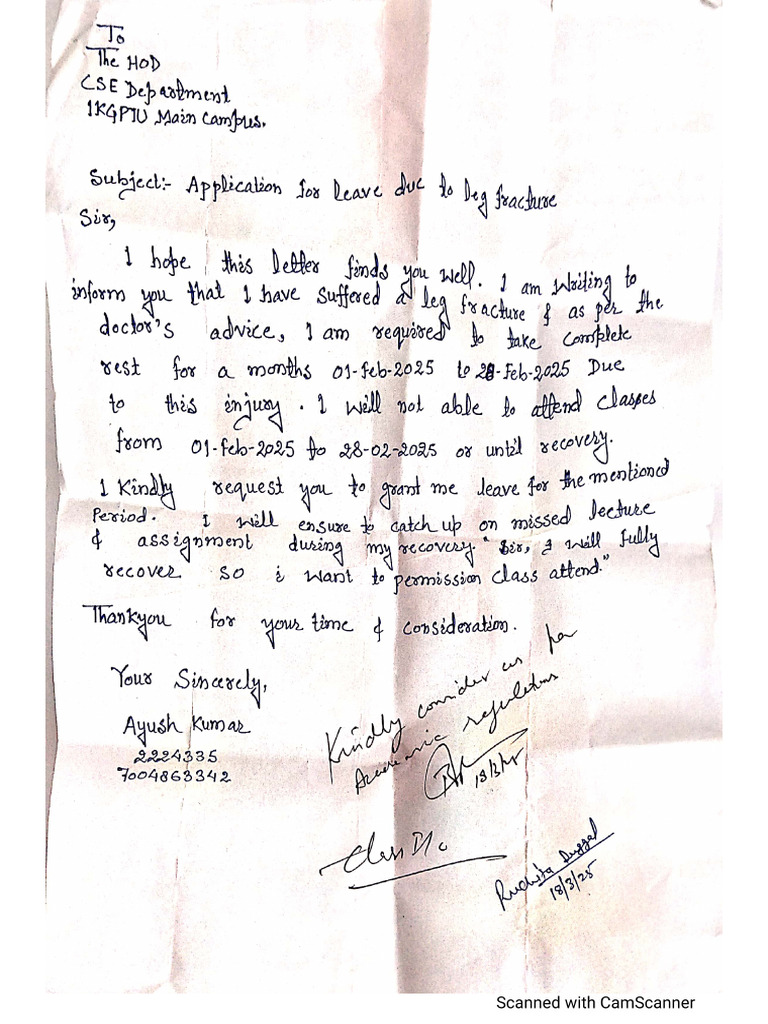 To
The HOD
CSE Department
IKGPTU Main Campus.
Subject:- Application for leave due to leg fracture
Sir,
I hope this letter finds you well. I am writing to
inform you that I have suffered a leg fracture & as per the
doctor's advice, I am required to take complete
rest for a months 01-Feb-2025 to 28-Feb-2025 Due
to this injury. I will not able to attend classes
from 01-Feb-2025 to 28-02-2025 or until recovery.
I Kindly request you to grant me leave for the mentioned
Period. I will ensure to catch up on missed lecture
& assignment during my recovery. "Sir, I will fully
recover so i want to permission class attend."
Thankyou for your time & consideration.
Your Sincerely,
Ayush Kumar
2224335
7004863342
Kindly consider as per
Academic regulations
18/3/25
Class I/c
Ruchita Duggal
18/3/25
Scanned with CamScanner